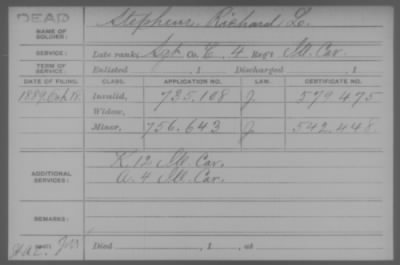 DEAD
NAME OF SOLDIER: Stephens, Richard L.
SERVICE: Late rank, Sgt Co. E, 4 Reg't Ill. Cav.
TERM OF SERVICE: Enlisted , 1 Discharged , 1
DATE OF FILING. CLASS. APPLICATION NO. LAW. CERTIFICATE NO.
1889, Invalid, 735,108 J. 579,475
Widow,
Minor, 756,643 J. 542,448
ADDITIONAL SERVICES: K. 12 Ill. Cav.
A. 4 Ill. Cav.
REMARKS:
Died , 1 , at